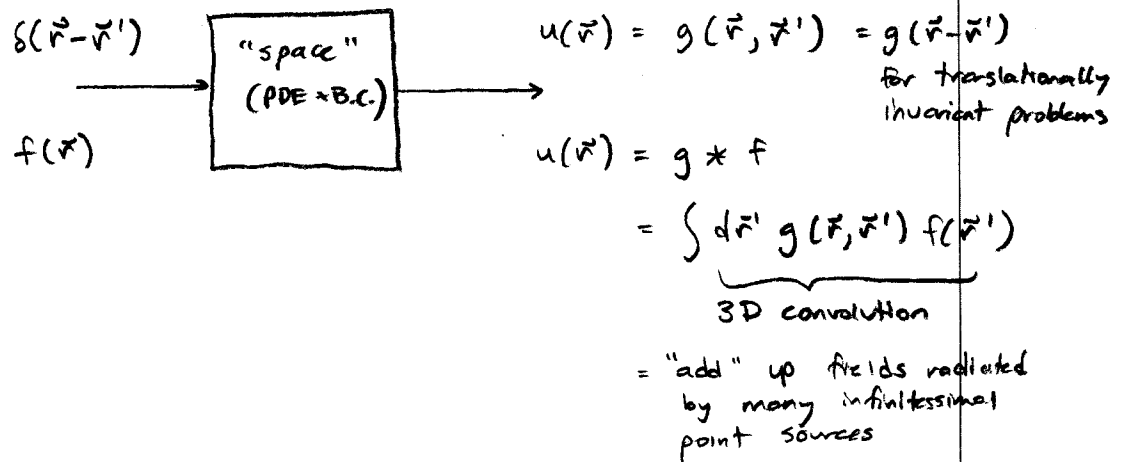 δ(r⃗-r⃗')
"space"
(PDE + B.C.)
f(r⃗)
u(r⃗) = g(r⃗, r⃗') = g(r⃗-r⃗')
for translationally
invariant problems
u(r⃗) = g * f
= ∫ dr⃗' g(r⃗, r⃗') f(r⃗')
3D convolution
= "add" up fields radiated
by many infinitessimal
point sources